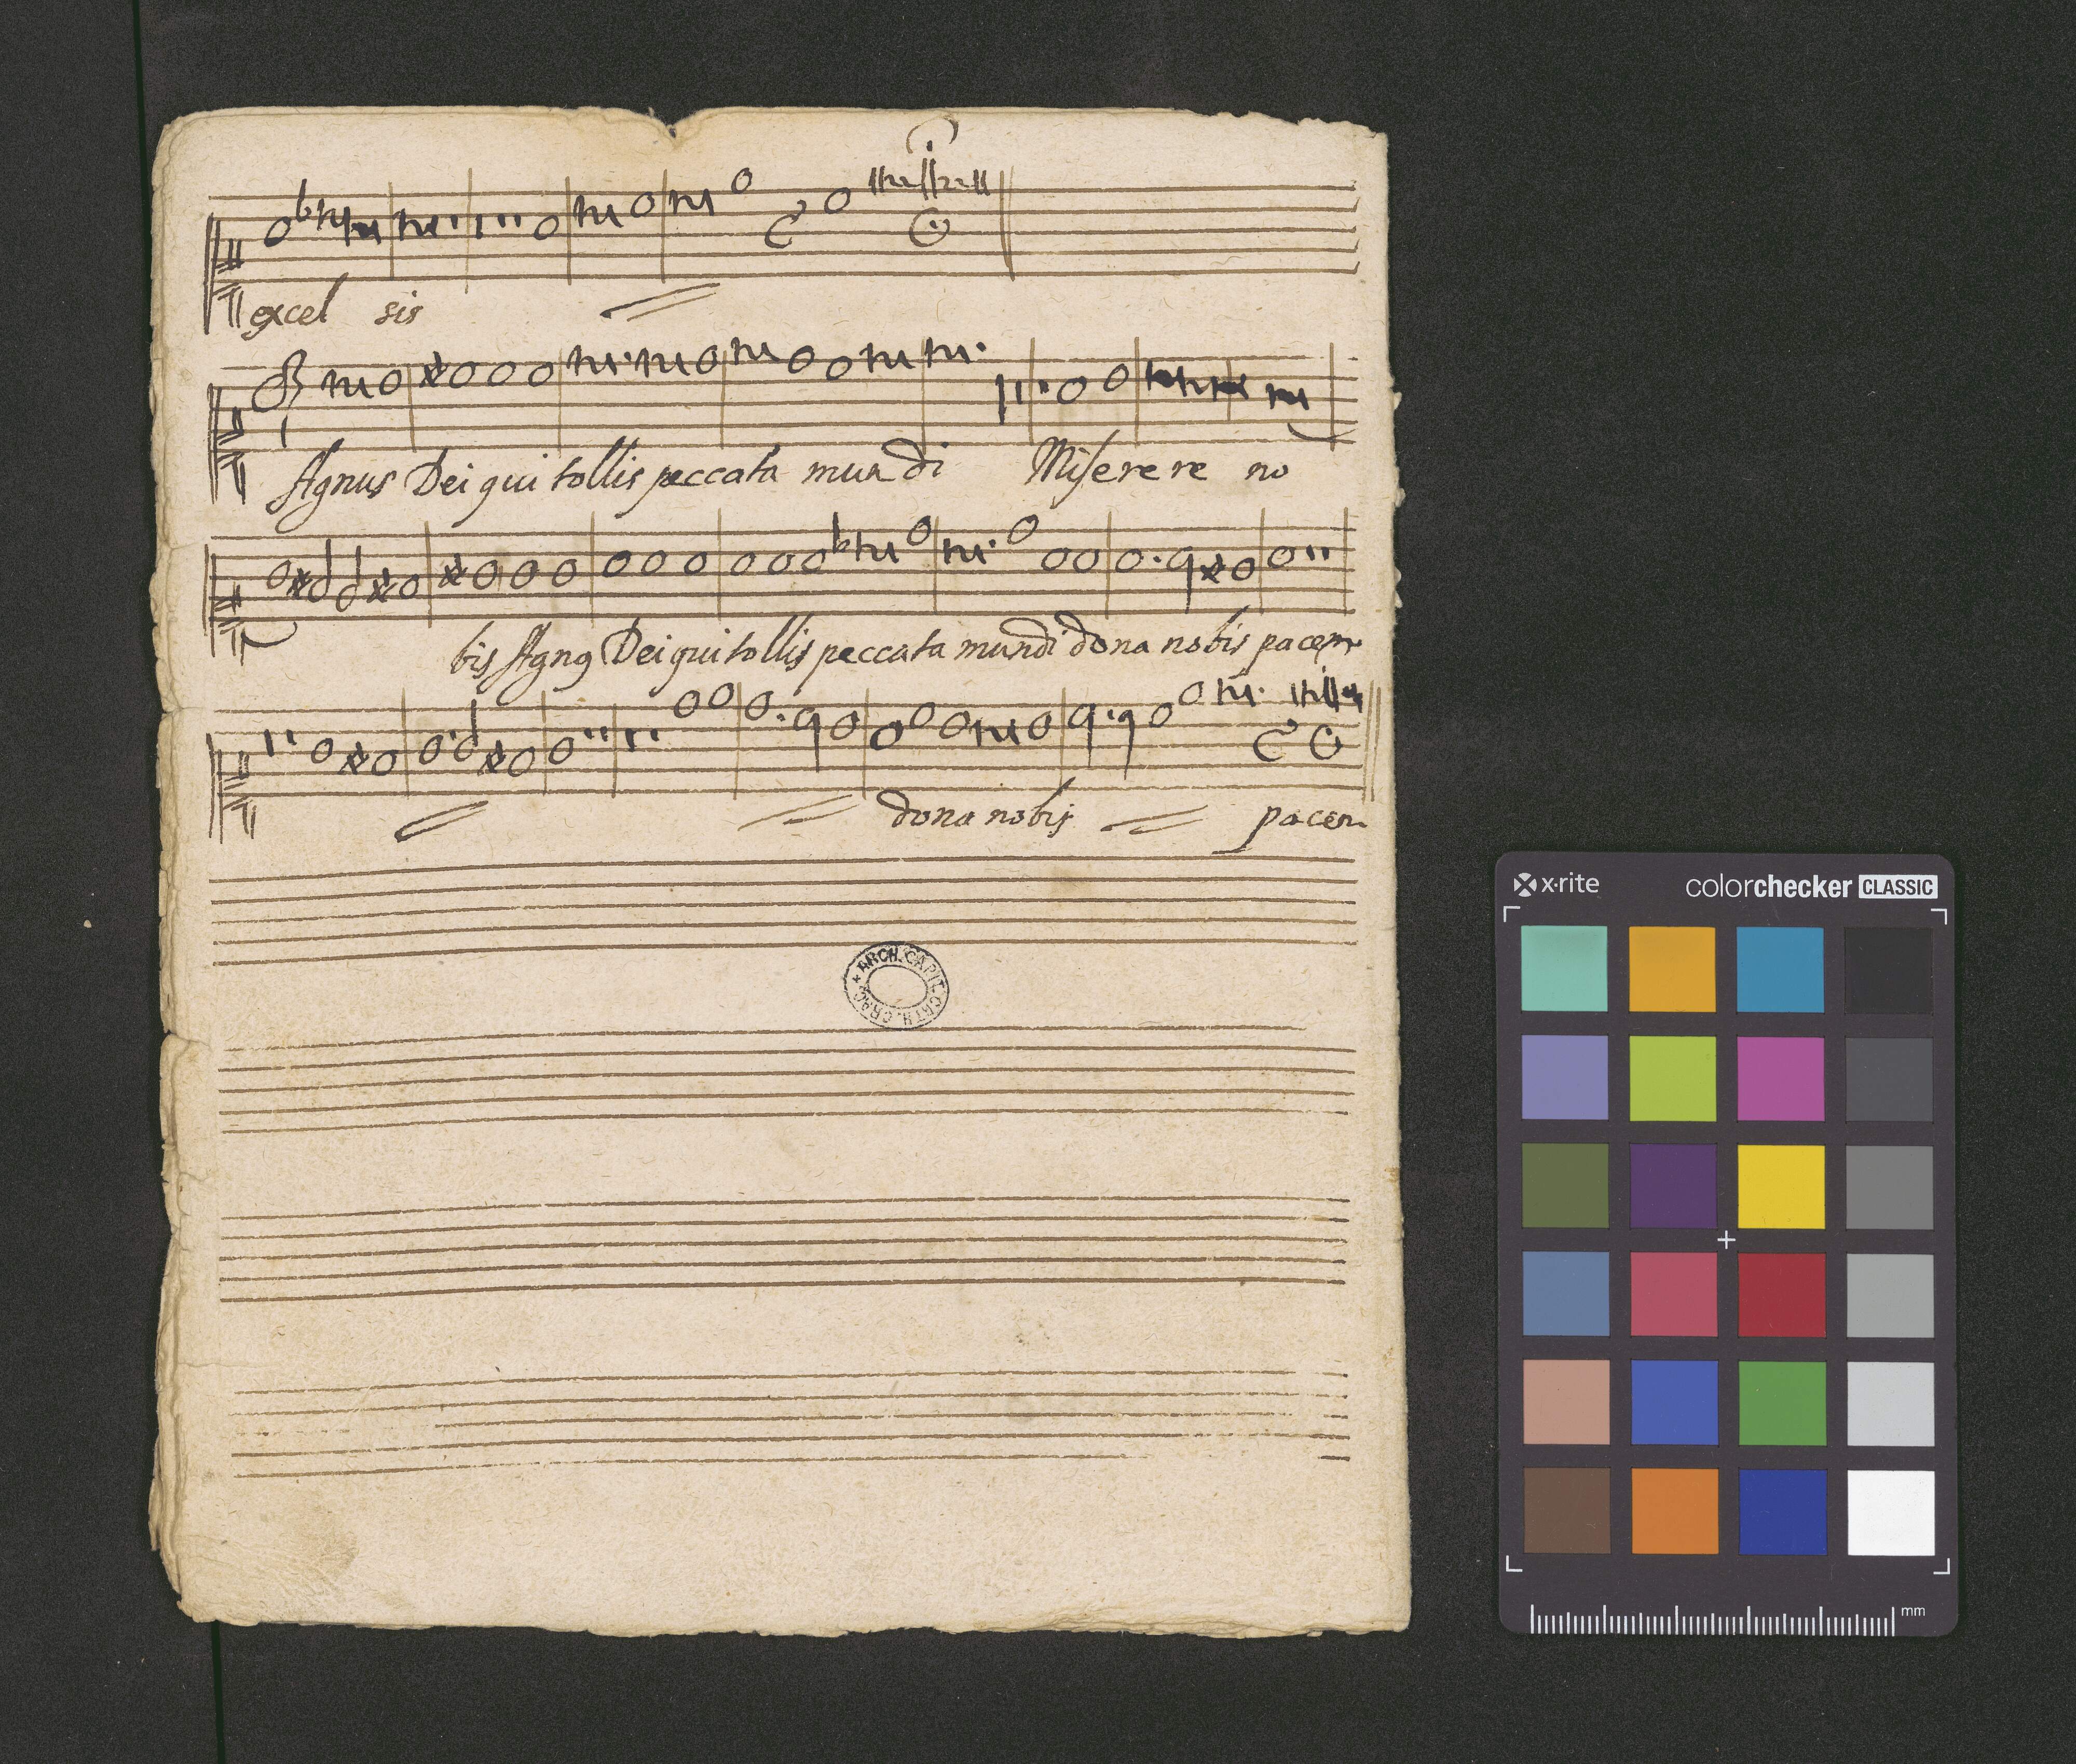 excel sis
Agnus Dei qui tollis peccata mundi Miserere no
bis Agn9 Dei qui tollis peccata mundi dona nobis pacem
dona nobis pacem
ARCH. CAPIT. CATH. CRAC.
x·rite colorchecker CLASSIC
mm